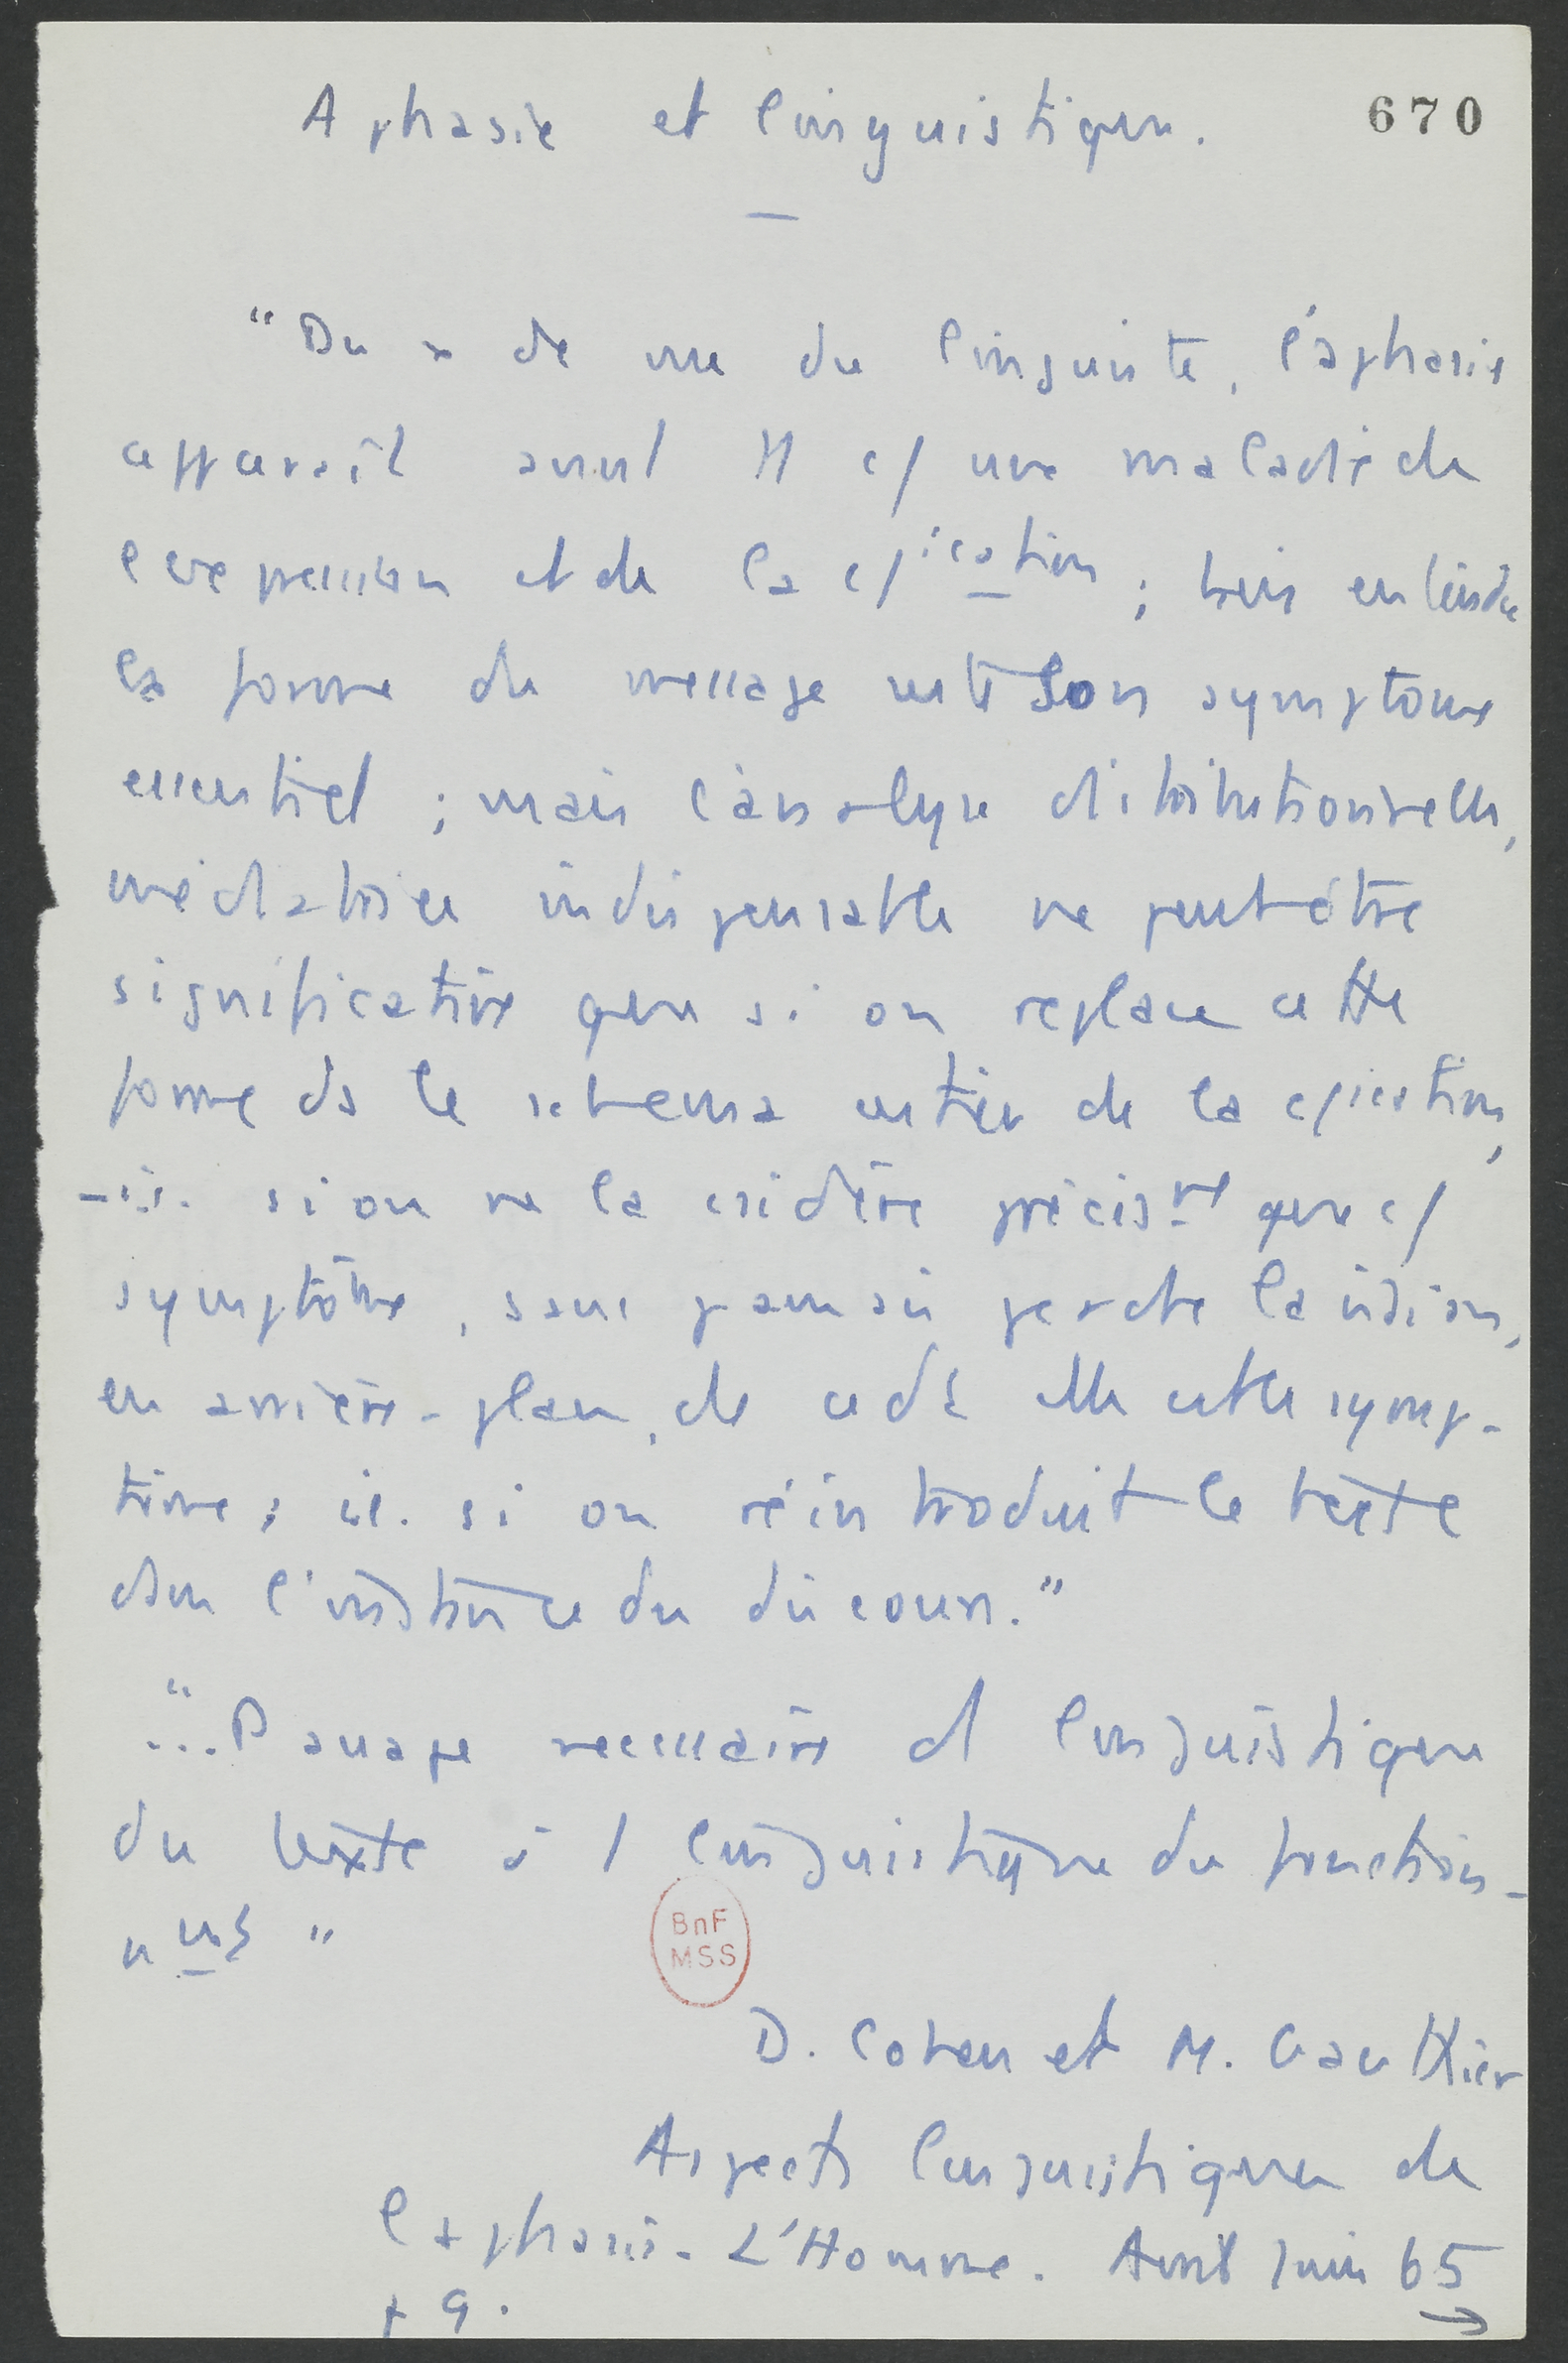 Aphasie et linguistique.
670
"Du × de vue du linguiste, l'aphasie
apparaît avant tt c/ une maladie de
l'expression et de la c/ication ; bien entendu
la forme du message reste son symptome
essentiel ; mais l'analyse distributionnelle,
médiatrice indispensable ne peut être
significative que si on replace cette
forme ds le schema entier de la c/ication,
-i.e. si on ne la csidère précismt que c/
symptôme, sans jamais perdre la vision,
en arrière-plan, de ce dt elle est le symp-
tôme ; i.e. si on réintroduit le texte
dans l'instance du discours."
"...Passage necessaire d linguistique
du texte à l linguistique du fonction-
nemt"
BnF
MSS
D. Cohen et M. Gauthier
Aspects linguistiques de
l'aphasie - L'Homme. Avril Juin 65
p 9.
→